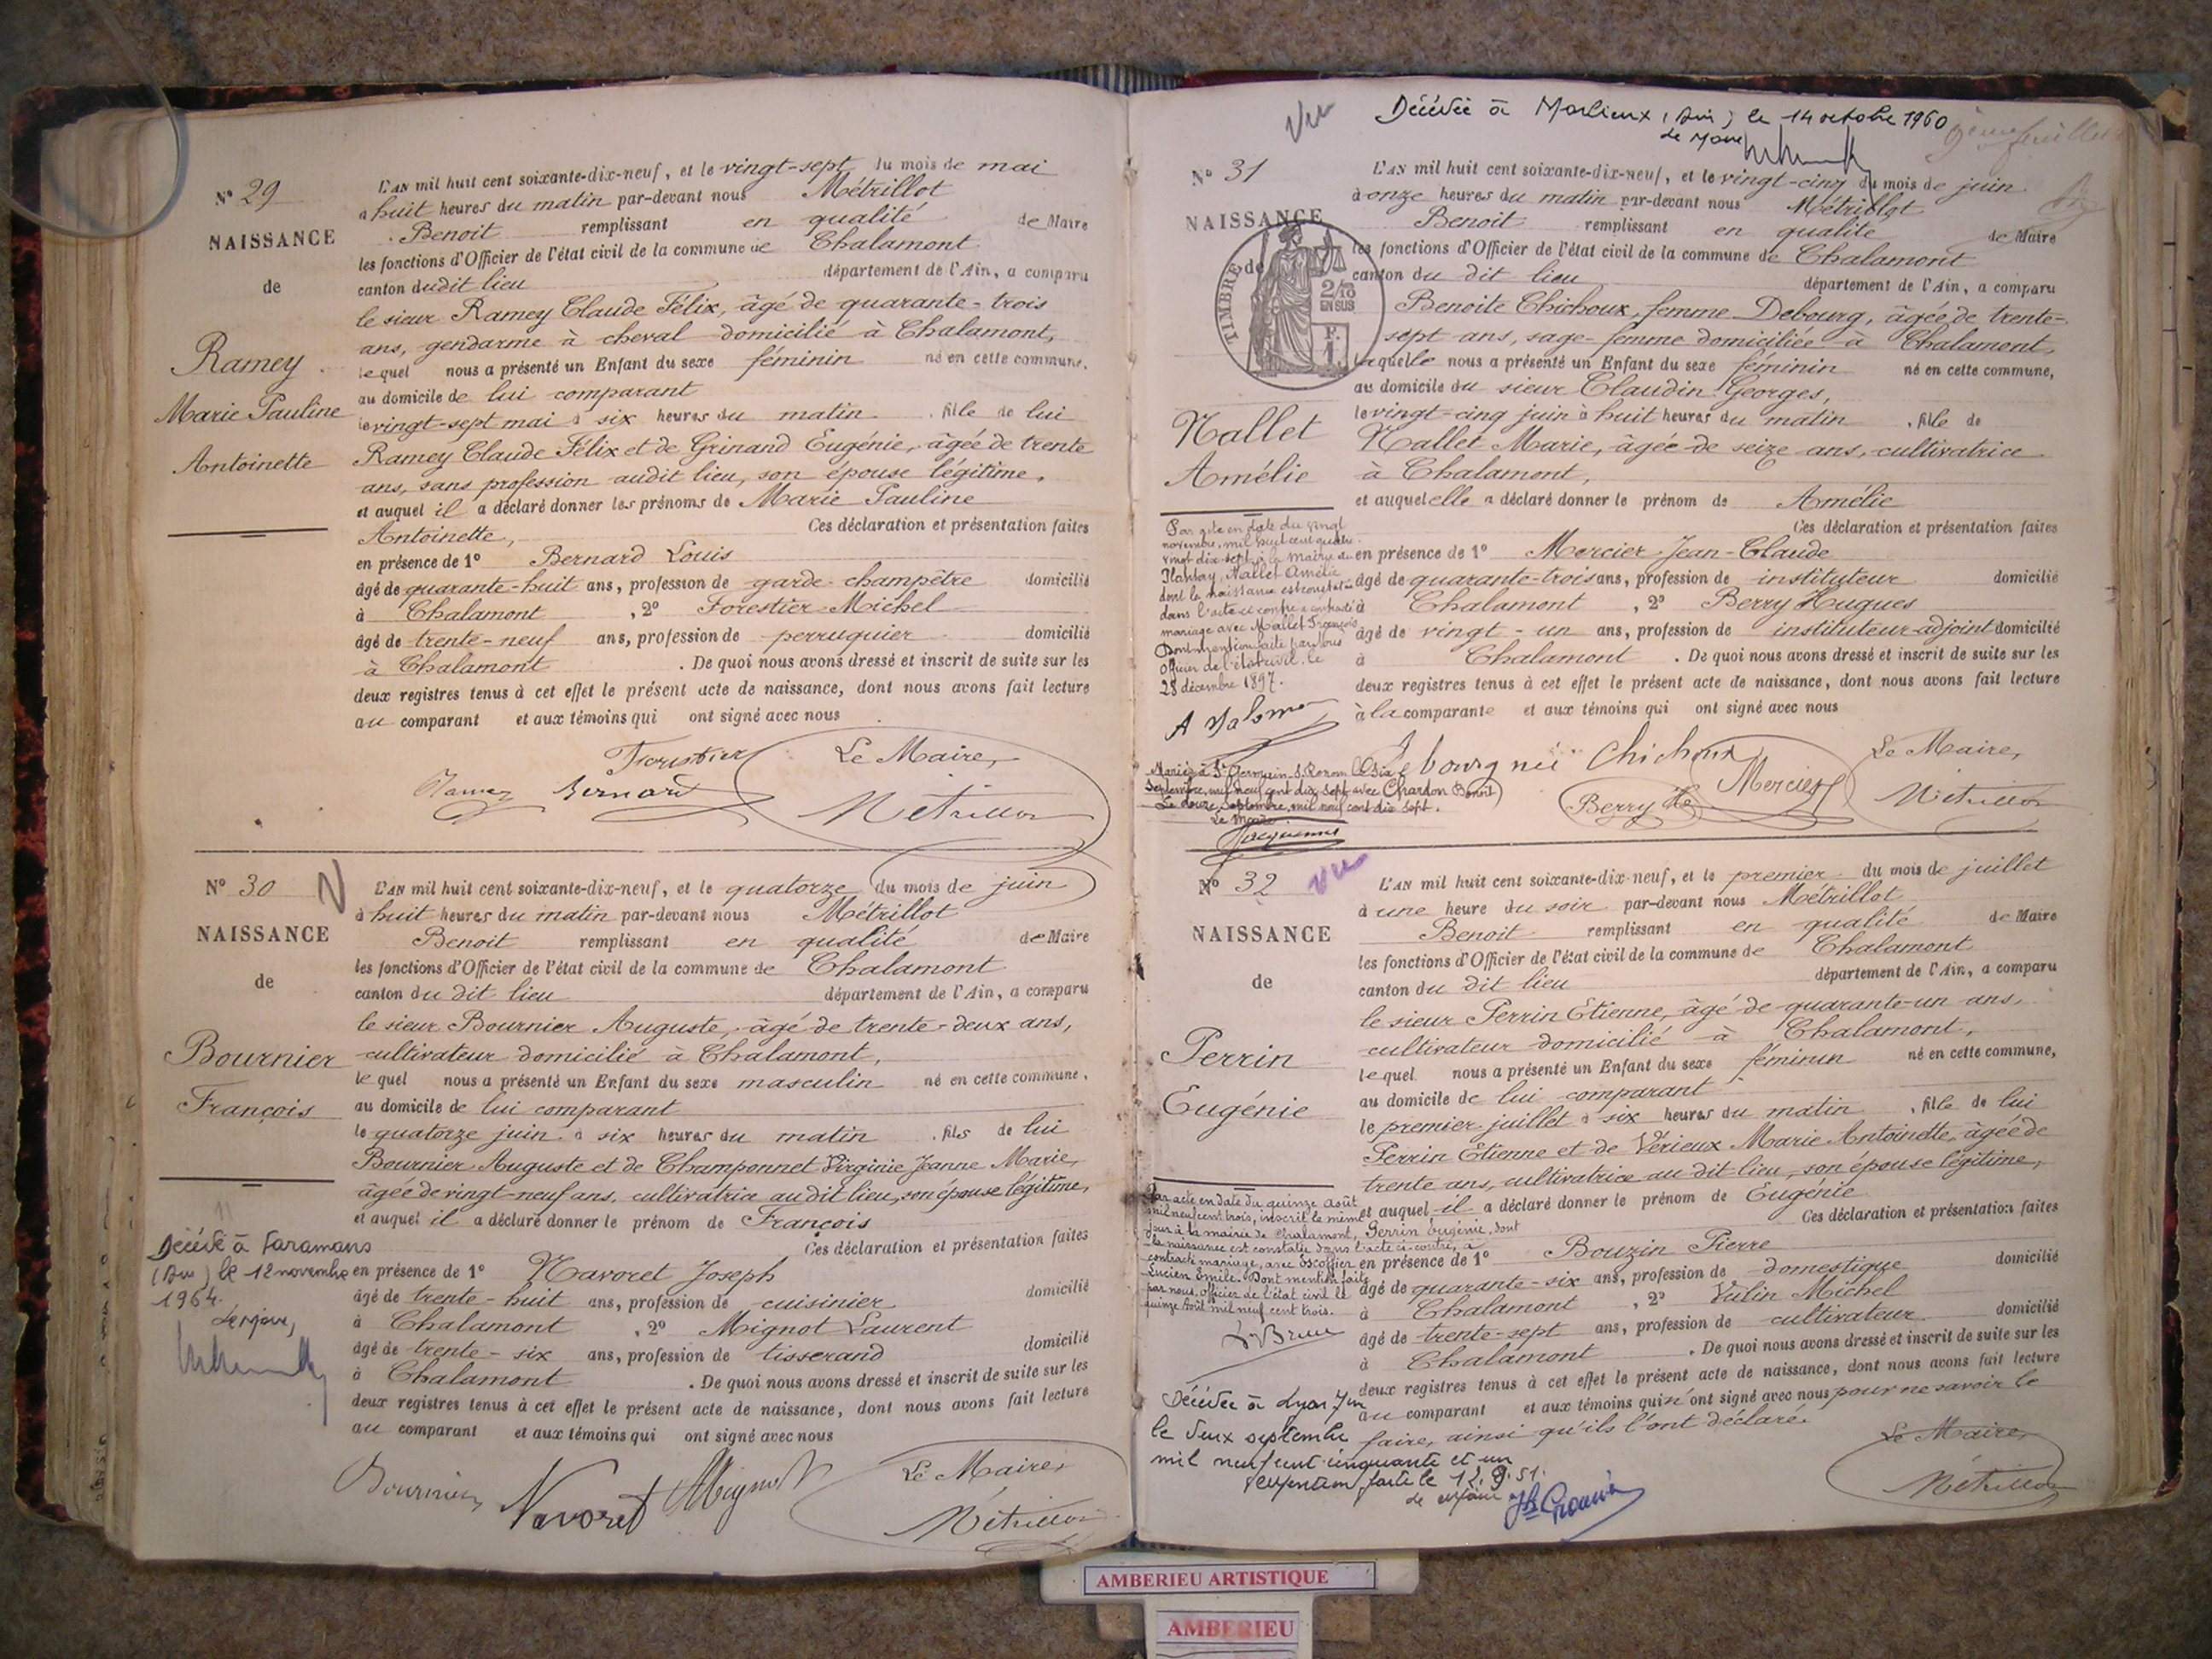 N° 29
NAISSANCE
de
Ramey
Marie Pauline
Antoinette
L'AN mil huit cent soixante-dix-neuf, et le vingt-sept du mois de mai
à huit heures du matin par-devant nous Métrillot
Benoit remplissant en qualité de Maire
les fonctions d'Officier de l'état civil de la commune de Chalamont
canton dudit lieu département de l'Ain, a comparu
le sieur Ramey Claude Félix, âgé de quarante-trois
ans, gendarme à cheval domicilié à Chalamont,
lequel nous a présenté un Enfant du sexe féminin né en cette commune,
au domicile de lui comparant
le vingt-sept mai à six heures du matin, fille de lui
Ramey Claude Félix et de Grinand Eugénie, âgée de trente
ans, sans profession audit lieu, son épouse légitime,
et auquel il a déclaré donner les prénoms de Marie Pauline
Antoinette, Ces déclaration et présentation faites
en présence de 1° Bernard Louis
âgé de quarante-huit ans, profession de garde-champêtre domicilié
à Chalamont, 2° Forestier Michel
âgé de trente-neuf ans, profession de perruquier domicilié
à Chalamont. De quoi nous avons dressé et inscrit de suite sur les
deux registres tenus à cet effet le présent acte de naissance, dont nous avons fait lecture
au comparant et aux témoins qui ont signé avec nous
Forestier Le Maire,
Ramey Bernard Métrillot
N° 30 N
NAISSANCE
de
Bournier
François
Décédé à Faramans
(Ain) le 12 novembre
1964.
L'AN mil huit cent soixante-dix-neuf, et le quatorze du mois de juin
à huit heures du matin par-devant nous Métrillot
Benoit remplissant en qualité de Maire
les fonctions d'Officier de l'état civil de la commune de Chalamont
canton du dit lieu département de l'Ain, a comparu
le sieur Bournier Auguste, âgé de trente-deux ans,
cultivateur domicilié à Chalamont,
lequel nous a présenté un Enfant du sexe masculin né en cette commune,
au domicile de lui comparant
le quatorze juin à six heures du matin, fils de lui
Bournier Auguste et de Champonnet Virginie Jeanne Marie,
âgée de vingt-neuf ans, cultivatrice au dit lieu, son épouse légitime,
et auquel il a déclaré donner le prénom de François
Ces déclaration et présentation faites
en présence de 1° Navoret Joseph
âgé de trente-huit ans, profession de cuisinier domicilié
à Chalamont, 2° Mignot Laurent
âgé de trente-six ans, profession de tisserand domicilié
à Chalamont. De quoi nous avons dressé et inscrit de suite sur les
deux registres tenus à cet effet le présent acte de naissance, dont nous avons fait lecture
au comparant et aux témoins qui ont signé avec nous
Bournier Navoret Mignot Le Maire,
Métrillot
Vu Décédée à Marlieux (Ain) le 14 octobre 1960
9ème feuillet
N° 31
NAISSANCE
de
TIMBRE
2/10
EN SUS
F.
1.
Nallet
Amélie
Par acte en date du vingt
novembre, mil huit cent quatre
vingt dix-sept à la mairie de
Nallet Amélie
dont la naissance est constatée
dans l'acte ci contre a contracté
mariage avec Mallet François
Dont mention faite par nous
Officier de l'état civil. le
28 décembre 1897.
Mariée à St Germain S. Renon
septembre, mil neuf cent dix sept avec Chardon Benoit
Le douze septembre, mil neuf cent dix sept.
L'AN mil huit cent soixante-dix-neuf, et le vingt-cinq du mois de juin
à onze heures du matin par-devant nous Métrillot
Benoit remplissant en qualité de Maire
les fonctions d'Officier de l'état civil de la commune de Chalamont
canton du dit lieu département de l'Ain, a comparu
Benoite Chichoux, femme Debourg, âgée de trente-
sept ans, sage-femme domiciliée à Chalamont,
laquelle nous a présenté un Enfant du sexe féminin né en cette commune,
au domicile du sieur Claudin Georges,
le vingt-cinq juin à huit heures du matin, fille de
Nallet Marie, âgée de seize ans, cultivatrice
à Chalamont,
et auquel elle a déclaré donner le prénom de Amélie
Ces déclaration et présentation faites
en présence de 1° Mercier Jean-Claude
âgé de quarante-trois ans, profession de instituteur domicilié
à Chalamont, 2° Berry Hugues
âgé de vingt-un ans, profession de instituteur-adjoint domicilié
à Chalamont. De quoi nous avons dressé et inscrit de suite sur les
deux registres tenus à cet effet le présent acte de naissance, dont nous avons fait lecture
à la comparante et aux témoins qui ont signé avec nous
Chichoux Le Maire,
Berry H Mercier Métrillot
N° 32 Vu
NAISSANCE
de
Perrin
Eugénie
Par acte en date du quinze Août
mil neuf cent trois, inscrit le même
jour à la mairie de Chalamont, Perrin Eugénie, dont
la naissance est constatée dans l'acte ci-contre, a
contracté mariage, avec Escoffier
Lucien Emile. Dont mention faite
par nous, officier de l'état civil le
quinze Août mil neuf cent trois.
Décédée à Lyon 7me
le deux septembre
mil neuf cent cinquante et un
mention faite le 12.9.51.
L'AN mil huit cent soixante-dix-neuf, et le premier du mois de juillet
à une heure du soir par-devant nous Métrillot
Benoit remplissant en qualité de Maire
les fonctions d'Officier de l'état civil de la commune de Chalamont
canton du dit lieu département de l'Ain, a comparu
le sieur Perrin Etienne, âgé de quarante-un ans,
cultivateur domicilié à Chalamont,
lequel nous a présenté un Enfant du sexe féminin né en cette commune,
au domicile de lui comparant
le premier juillet à six heures du matin, fille de lui
Perrin Etienne et de Vérieux Marie Antoinette, âgée de
trente ans, cultivatrice au dit lieu, son épouse légitime,
et auquel il a déclaré donner le prénom de Eugénie
Ces déclaration et présentation faites
en présence de 1° Bouzin Pierre
âgé de quarante-six ans, profession de domestique domicilié
à Chalamont, 2° Vulin Michel
âgé de trente-sept ans, profession de cultivateur domicilié
à Chalamont. De quoi nous avons dressé et inscrit de suite sur les
deux registres tenus à cet effet le présent acte de naissance, dont nous avons fait lecture
au comparant et aux témoins qui n'ont signé avec nous pour ne savoir le
faire, ainsi qu'ils l'ont déclaré.
Le Maire,
Métrillot
AMBERIEU ARTISTIQUE
AMBERIEU